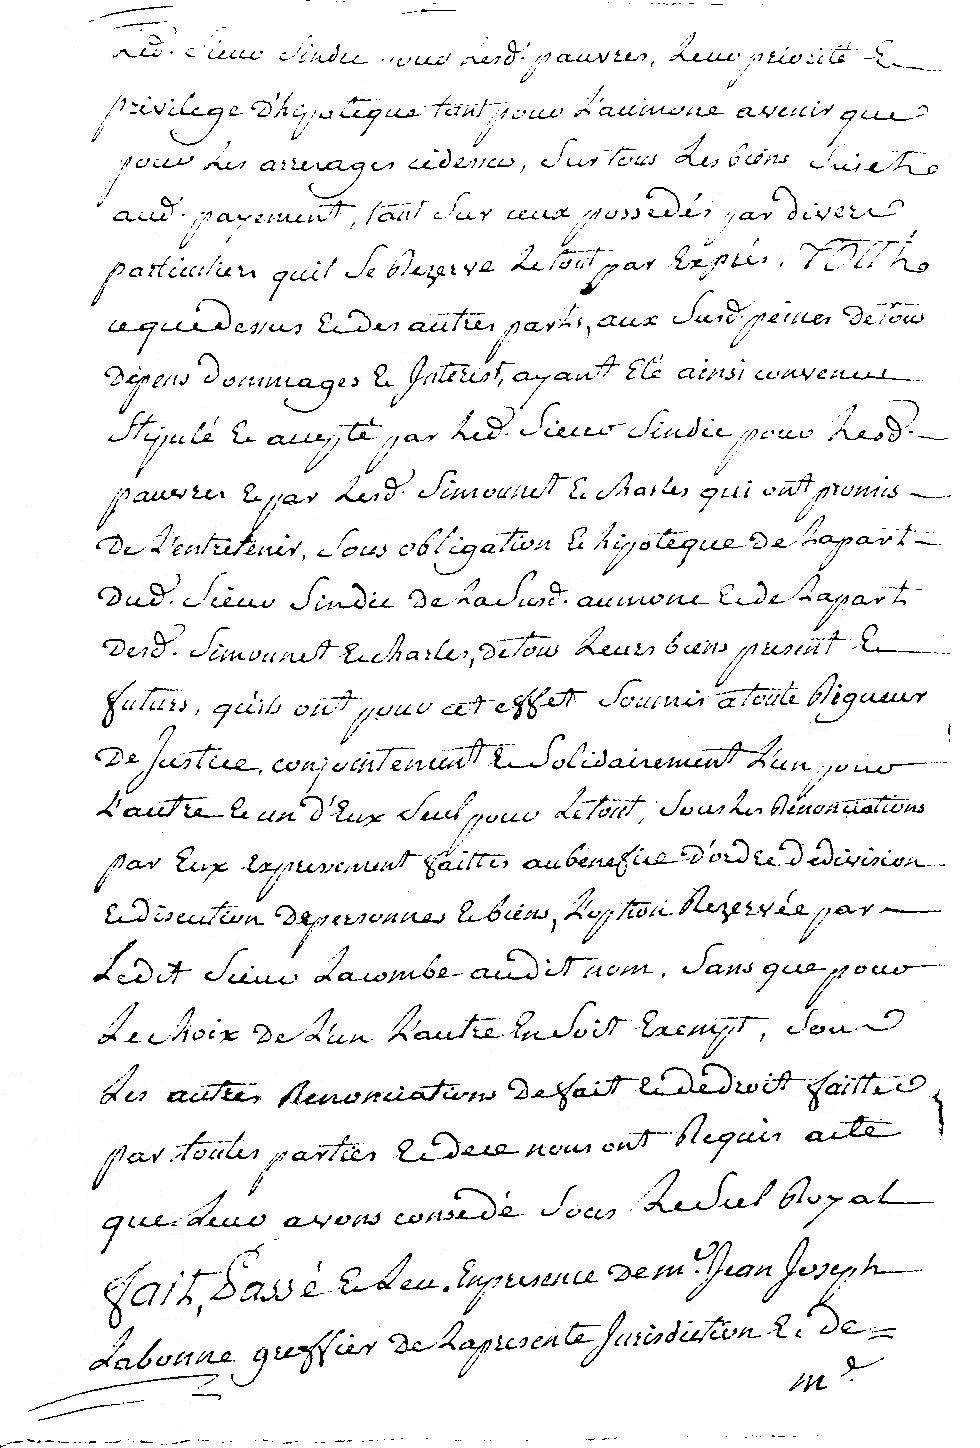 Led. Sieur Sindic pour Lesd. pauvres, Leur priorité &
privilege d'hipoteque tant pour L'aumone avenir que
pour Les arrerages cidessus, Sur tous Les biens Sujets
aud. payement, tant Sur ceux possedés par divers
particuliers quil Se Rezerve Letout par Exprés. TOUT
cequedessus & des autres parts, aux Susd. peines detous
dépens dommages & Interest, ayant été ainsi convenu
Stipulé & accepté par Led. Sieur Sindic pour Lesd.
pauvres & par Lesd. Simounet & charles qui ont promis
de L'entretenir, Sous obligation & hipoteque de Lapart
dud. Sieur Sindic de LaSusd. aumone & de Lapart
desd. Simounet & charles, detous Leurs biens present &
futurs, quils ont pour cet effet Soumis atoute Rigueur
de Justice, conjointement & Solidairement L'un pour
L'autre & un d'Eux Seul pour Letout, Sous Les Renonciations
par Eux expressement faittes aubenefice d'ordre dedivision
& discution depersonnes & biens, L'option Rezervée par
Ledit Sieur Lacombe audit nom, Sans que pour
Le choix de L'un L'autre En Soit Exempt, Sous
Les autres Renonciations defait & dedroit faittes
par toutes parties & dece nous ont Requis acte
que Leur avons consedé Sous Le Scel Royal
fait, Passé & Leu. Enpresence de me. Jean Joseph
Labonne greffier de Lapresente Jurisdiction & de
me.